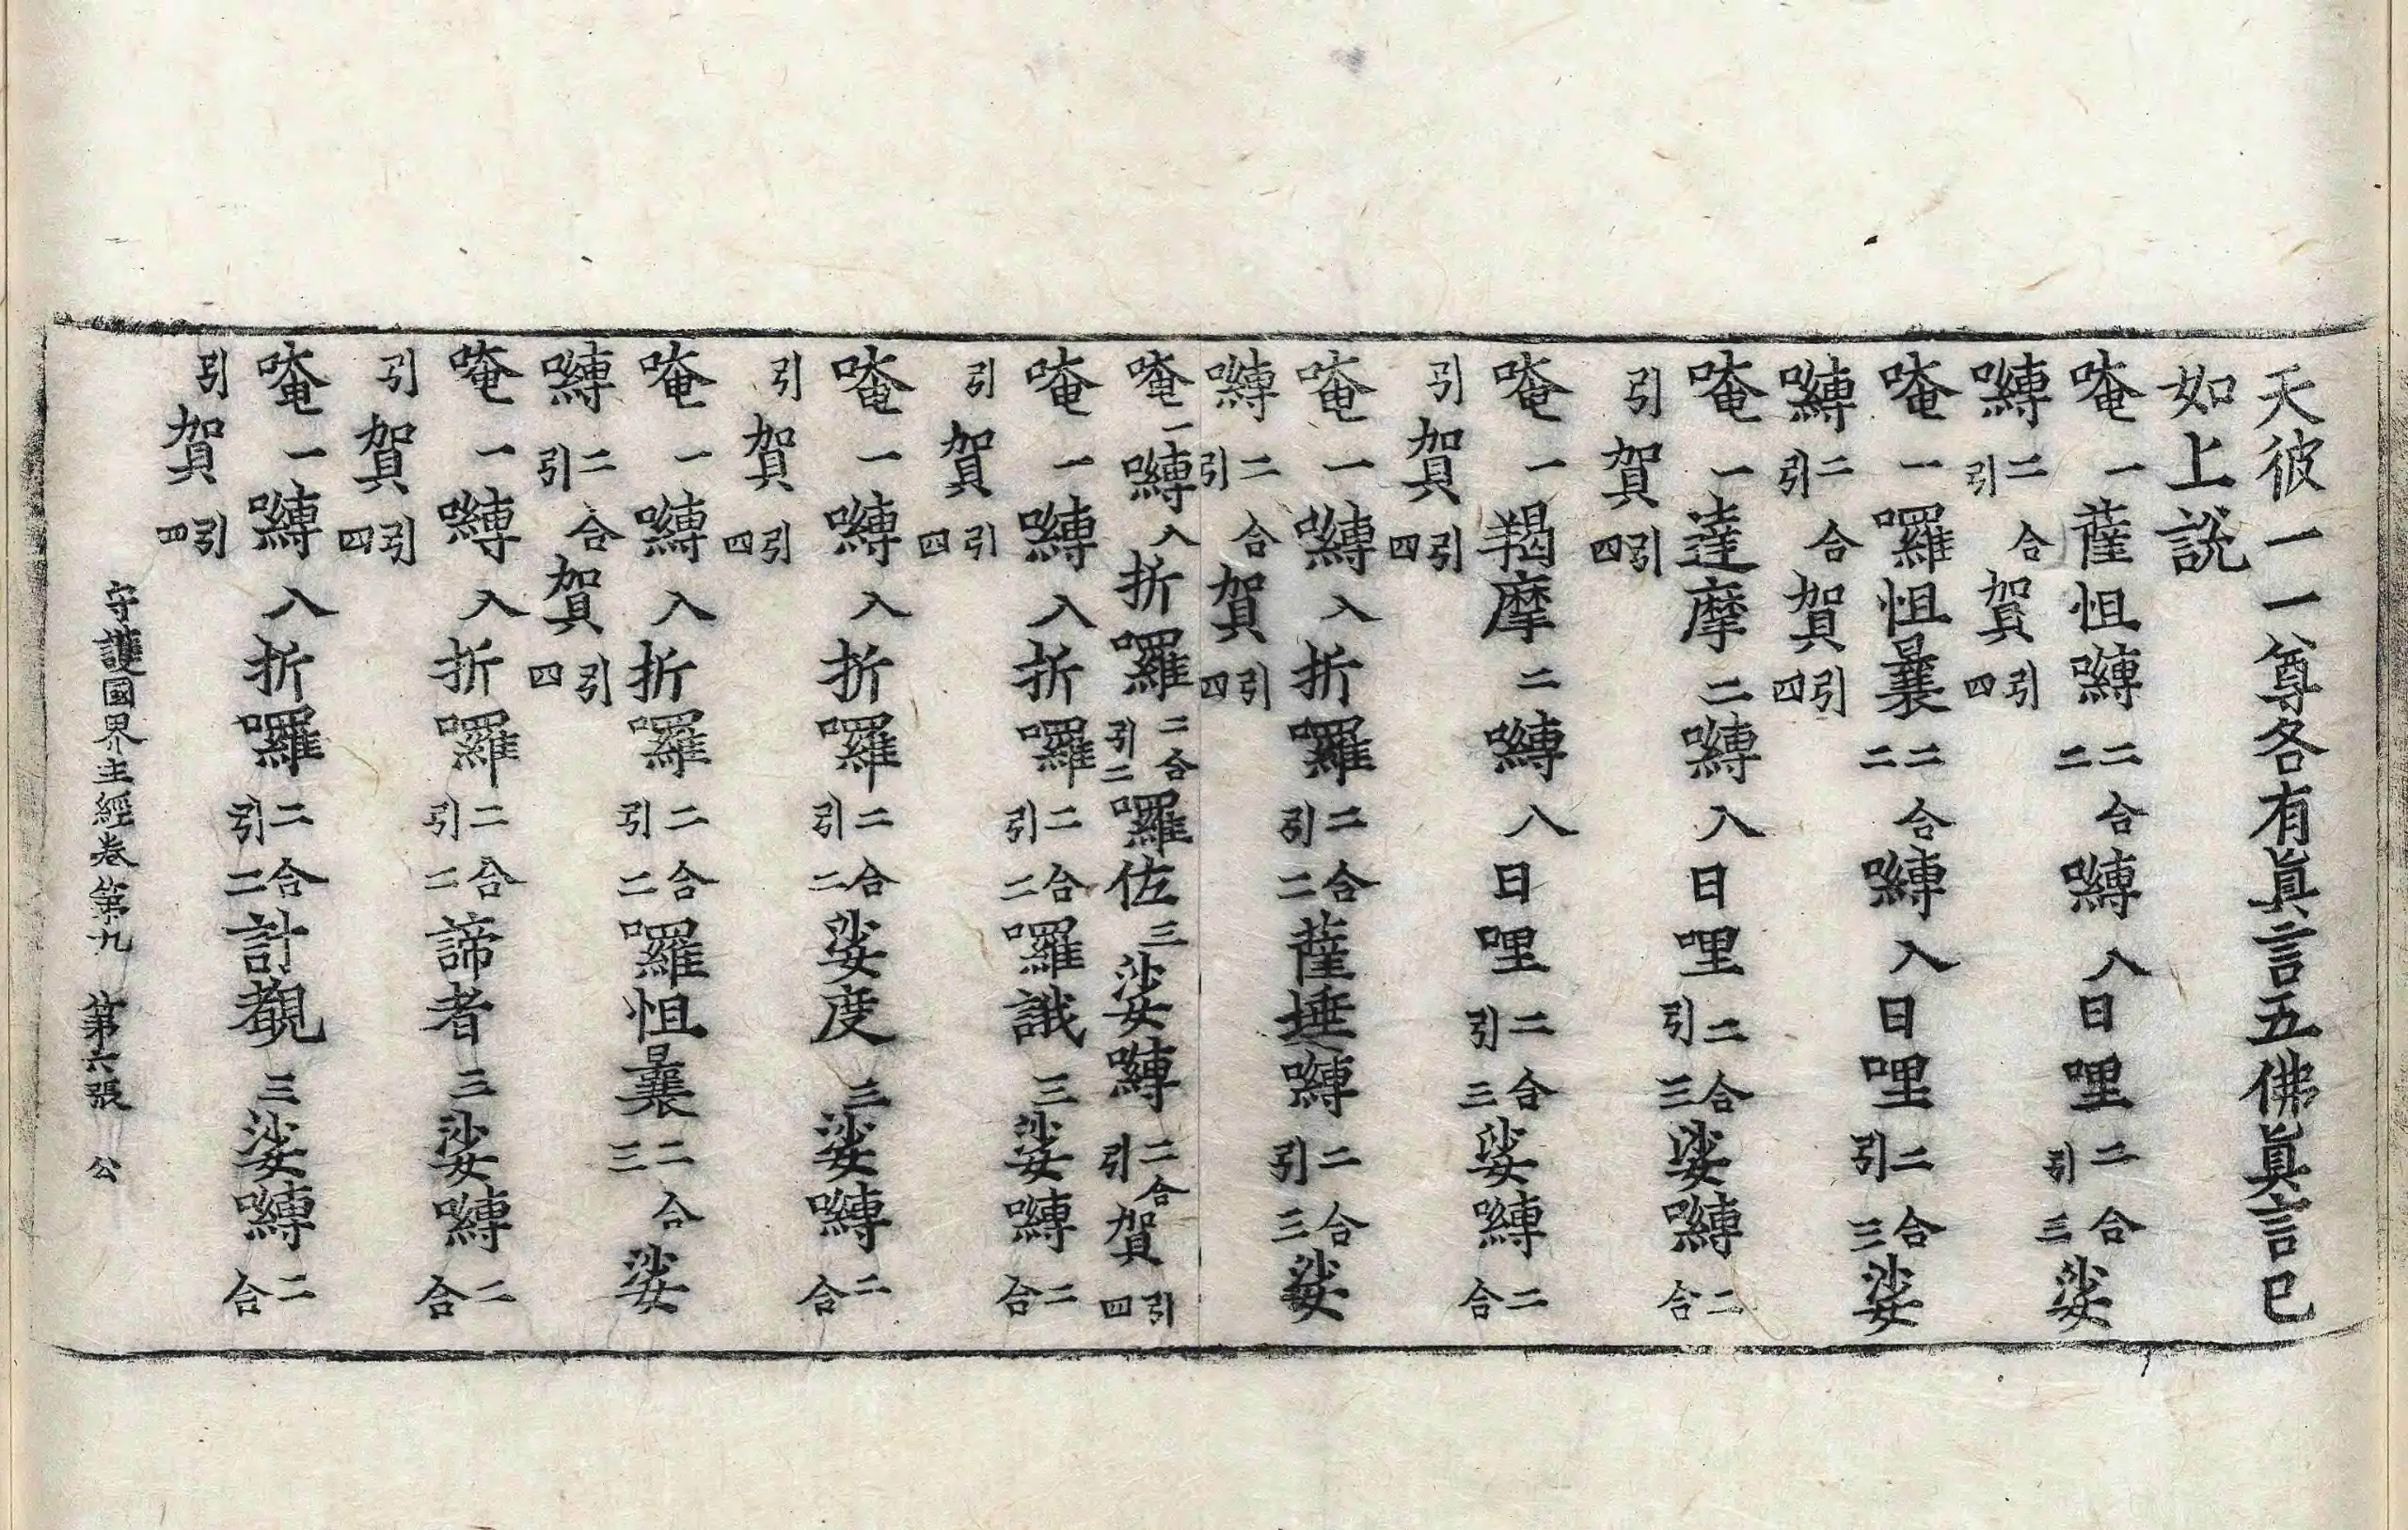 天彼一一尊各有眞言五佛眞言已
如上說
唵一薩怛嚩二合二嚩入日哩二合引三娑
嚩二合引賀引四
唵一囉怛曩二合二嚩入日哩二合引三娑
嚩二合引賀引四
唵一達摩二嚩入日哩二合引三娑嚩二合
引賀引四
唵一羯摩二嚩入日哩二合引三娑嚩二合
引賀引四
唵一嚩入折囉二合引二薩埵嚩二合引三娑
嚩二合引賀引四
唵一嚩入折囉二合引二囉佐三娑嚩二合引賀引四
唵一嚩入折囉二合引二囉誐三娑嚩二合
引賀引四
唵一嚩入折囉二合引二娑度三娑嚩二合
引賀引四
唵一嚩入折囉二合引二囉怛曩二合三娑
嚩二合引賀引四
唵一嚩入折囉二合引二諦者三娑嚩二合
引賀引四
唵一嚩入折囉二合引二計覩三娑嚩二合
引賀引四
守護國界主經卷第九 第六張 公